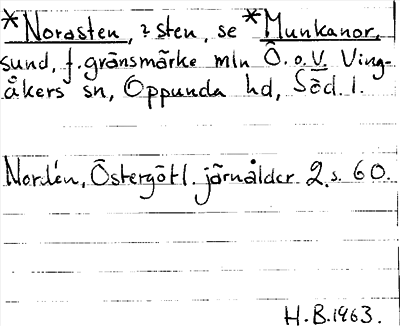 *Norasten, ? sten, se *Munkanor,
sund, f. gränsmärke mln Ö. o. V. Ving-
åkers sn, Oppunda hd, Söd. l.
Nordén, Östergötl. järnålder 2 s. 60.
H.B. 1963.